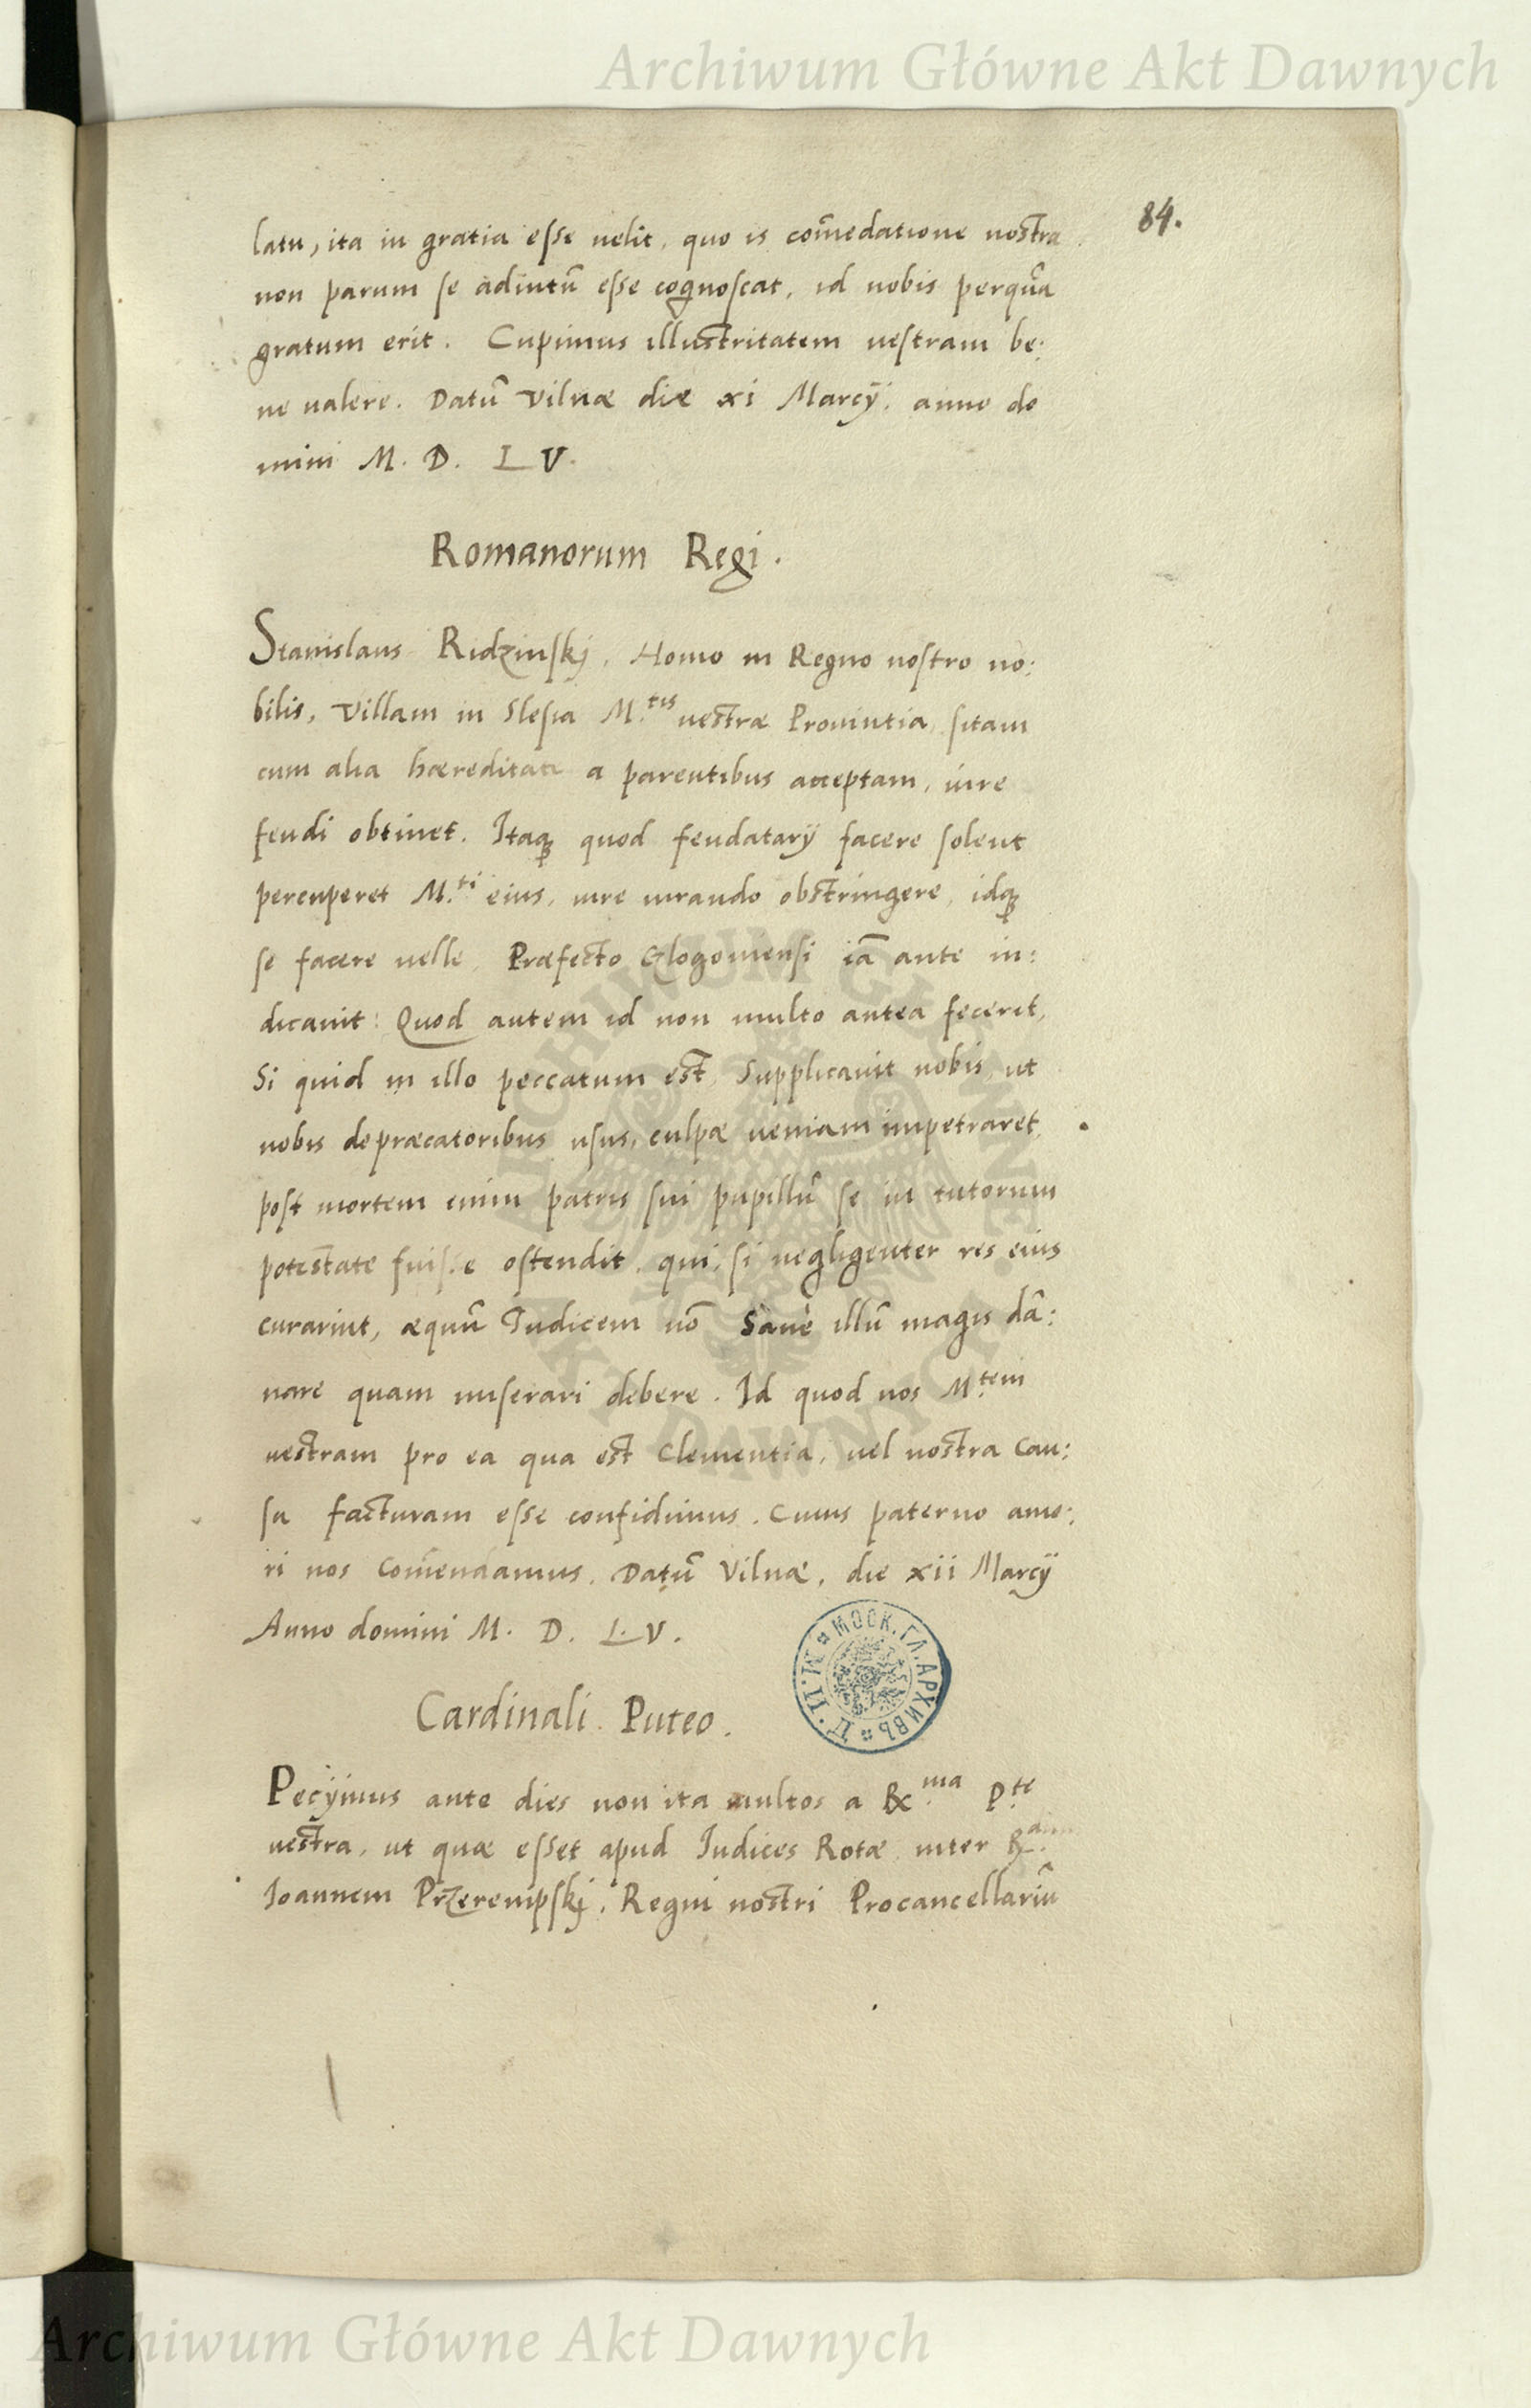 Archiwum Główne Akt Dawnych
84.
latu, ita in gratia esse uelit, quo is com̄edatione nostra
non parum se adiutū esse cognoscat, id nobis perquā
gratum erit. Cupimus illustritatem uestram be:
ne ualere. Datū Vilnæ die xi Marcÿ, anno do
mini M. D. L V.
Romanorum Regi.
Stanislaus Ridzinskj, Homo in Regno nostro no:
bilis, Villam in Slesia M.tis uestræ Prouintia, sitam
cum alia hæreditate a parentibus acceptam, iure
feudi obtinet. Itaqꝫ quod feudatarÿ facere solent
percuperet M.ti eius, iure iurando obstringere, idqꝫ
se facere uelle, Præfecto Glogouiensi iā ante in:
dicauit: Quod autem id non multo antea fecerit,
Si quid in illo peccatum est, Supplicauit nobis, ut
nobis depræcatoribus usus, culpæ ueniam impetraret,
post mortem enim patris sui pupillū se in tutorum
potestate fuisse ostendit, qui, si negligenter res eius
curarint, æquū Iudicem nō Sane illū magis dā:
nare quam miserari debere. Id quod nos M.tem
uestram pro ea qua est Clementia, uel nostra Cau:
sa facturam esse confidimus. Cuius paterno amo:
ri nos Com̄endamus. Datū Vilnæ, die xii Marcÿ
Anno domini M. D. L. V.
МОСК. ГЛ. АРХИВЪ
Cardinali Puteo.
Pecÿimus ante dies non ita multos a R.ma P.te
uestra, ut quæ esset apud Iudices Rotæ inter R.
Ioannem Przerempskj, Regni nostri Procancellariū
Archiwum Główne Akt Dawnych